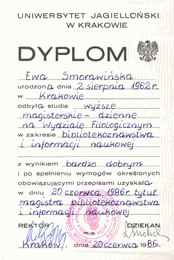 UNIWERSYTET JAGIELLOŃSKI
W KRAKOWIE
DYPLOM
Ewa Smorawińska
urodzona dnia 2 sierpnia 1962 r.
w Krakowie
odbyła studia wyższe
magisterskie - dzienne
na Wydziale Filologicznym
w zakresie bibliotekoznawstwa
i informacji naukowej
z wynikiem bardzo dobrym
i po spełnieniu wymogów określonych
obowiązującymi przepisami uzyskała
w dniu 20 czerwca 1986 r. tytuł
magistra bibliotekoznawstwa
i informacji naukowej
REKTOR DZIEKAN
Kraków, dnia 20 czerwca 1986.